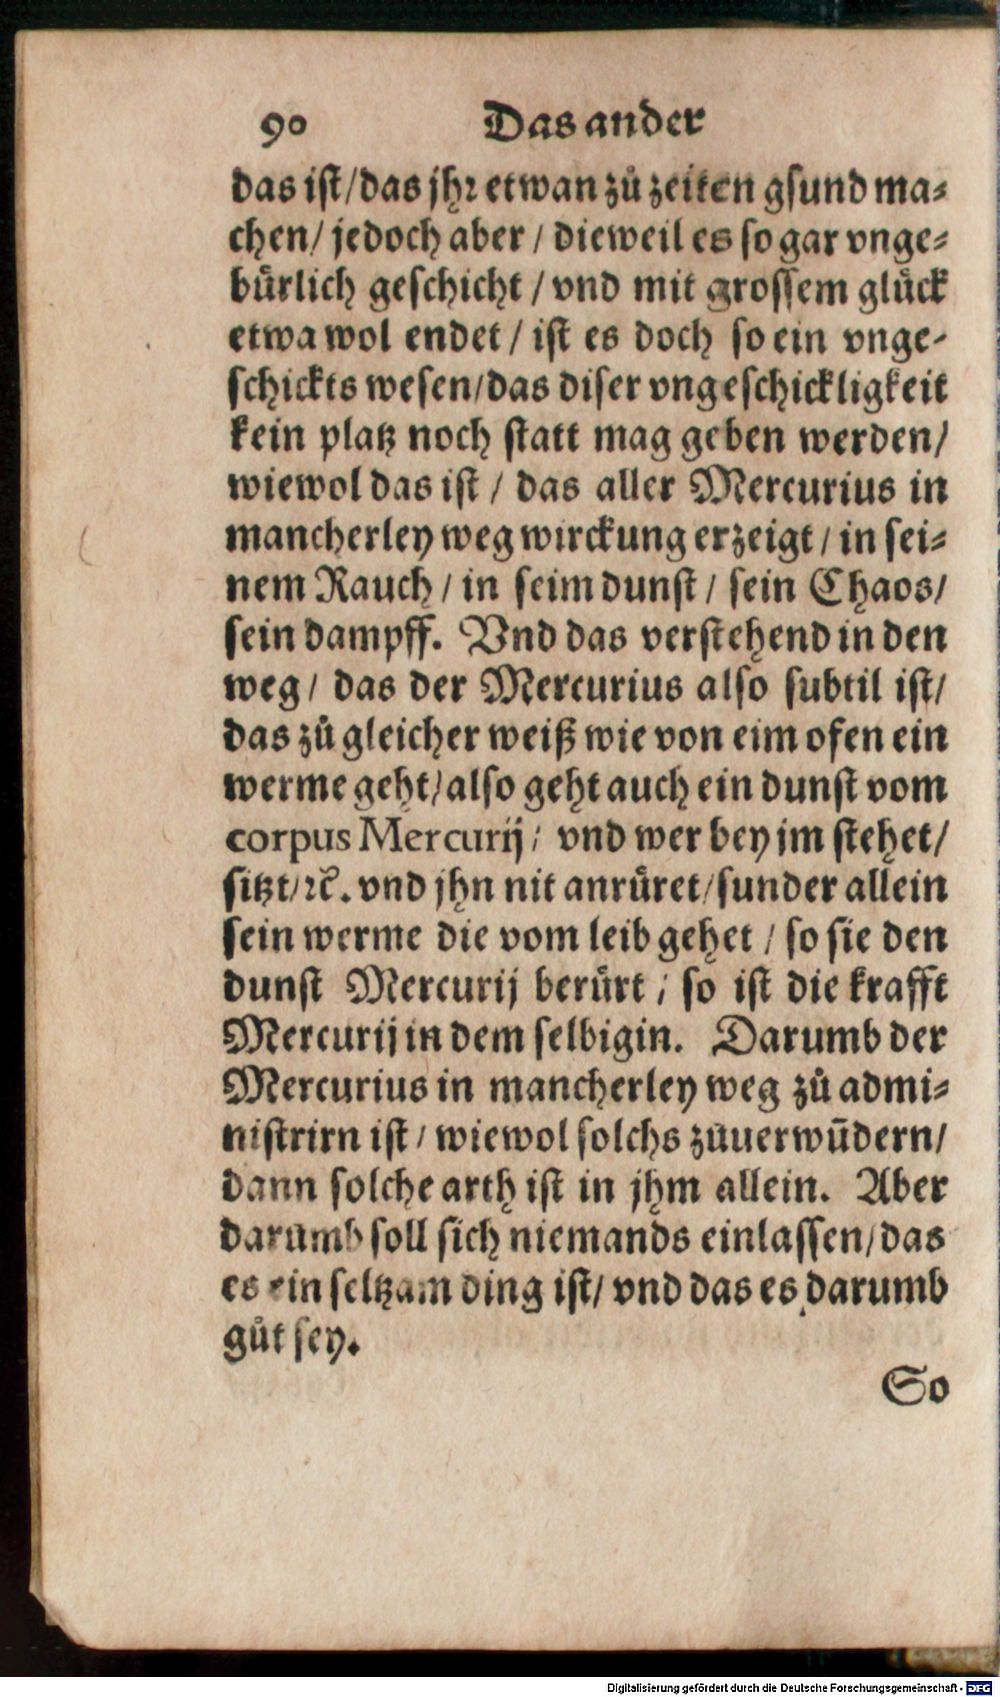 90 Das ander
das ist/das jhr etwan zů zeiten gsund ma⸗
chen/ jedoch aber / dieweil es so gar vnge⸗
bürlich geschicht / vnd mit grossem glück
etwa wol endet / ist es doch so ein vnge⸗
schickts wesen/das diser vngeschickligkeit
kein platz noch statt mag geben werden/
wiewol das ist / das aller Mercurius in
mancherley weg wirckung erzeigt / in sei⸗
nem Rauch / in seim dunst / sein Chaos/
sein dampff. Vnd das verstehend in den
weg / das der Mercurius also subtil ist/
das zů gleicher weiß wie von eim ofen ein
werme geht/also geht auch ein dunst vom
corpus Mercurij/ vnd wer bey jm stehet/
sitzt/ꝛc. vnd jhn nit anrüret/sunder allein
sein werme die vom leib gehet / so sie den
dunst Mercurij berürt / so ist die krafft
Mercurij in dem selbigin. Darumb der
Mercurius in mancherley weg zů admi⸗
nistrirn ist / wiewol solchs zůuerwũdern/
dann solche arth ist in jhm allein. Aber
darumb soll sich niemands einlassen/das
es ein seltzam ding ist/ vnd das es darumb
gůt sey.
So
Digitalisierung gefördert durch die Deutsche Forschungsgemeinschaft - DFG